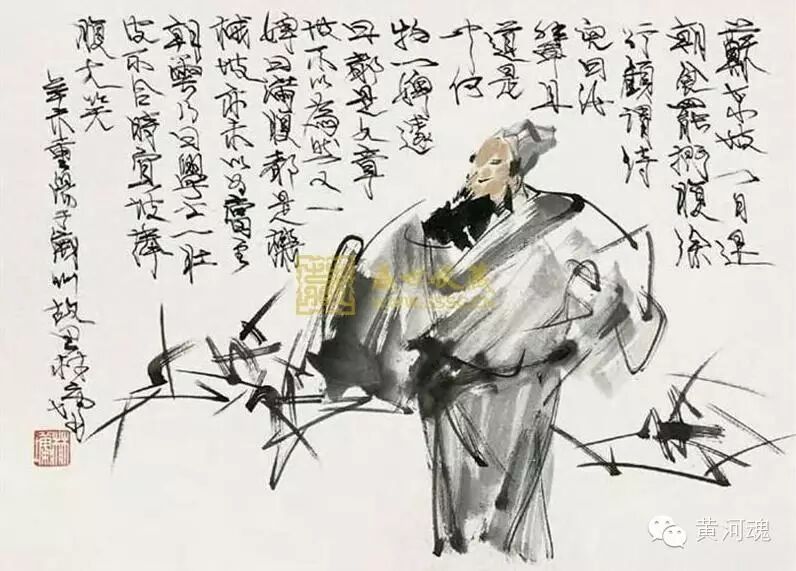 蘇東坡一日退
朝食罷捫腹徐
行顧謂侍
兒曰汝
輩且
道是
中何
物一婢遽
曰都是文章
坡不以為然又一
婢曰滿腹都是機
械坡亦未以為當至
朝雲乃曰學士一肚
皮不合時宜坡捧
腹大笑
重陽于州故里林墉
盛世收藏
黄河魂